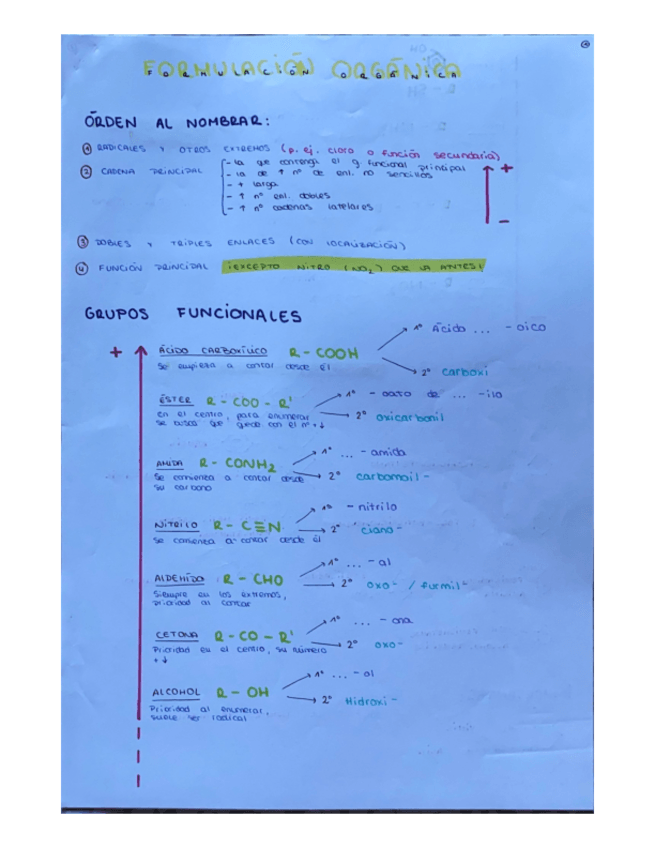 FORMULACIÓN ORGÁNICA
ÓRDEN AL NOMBRAR:
① RADICALES Y OTROS EXTREMOS (p. ej. cloro o función secundaria)
② CADENA PRINCIPAL
- la que contenga el g funcional principal
- la de ↑ nº de enl. no sencillos
- + larga
- ↑ nº enl. dobles
- ↑ nº cadenas laterales
+
-
③ DOBLES Y TRIPLES ENLACES (CON LOCALIZACIÓN)
④ FUNCIÓN PRINCIPAL ¡EXCEPTO NITRO (NO₂) QUE VA ANTES!
GRUPOS FUNCIONALES
+
ÁCIDO CARBOXÍLICO R - COOH
Se empieza a contar desde él
1º Ácido ... - oico
2º carboxi
ÉSTER R - COO - R'
en el centro, para enumerar
se busca que quede con el nº + ↓
1º - oato de ... - ilo
2º oxicarbonil
AMIDA R - CONH₂
Se comienza a contar desde
su carbono
1º ... - amida
2º carbamoil -
NITRILO R - C≡N
Se comienza a contar desde él
1º - nitrilo
2º ciano -
ALDEHÍDO R - CHO
Siempre en los extremos,
prioridad al contar
1º ... - al
2º oxo - / formil -
CETONA R - CO - R'
Prioridad en el centro, su número
+ ↓
1º ... - ona
2º oxo -
ALCOHOL R - OH
Prioridad al enumerar,
suele ser radical
1º ... - ol
2º Hidroxi -